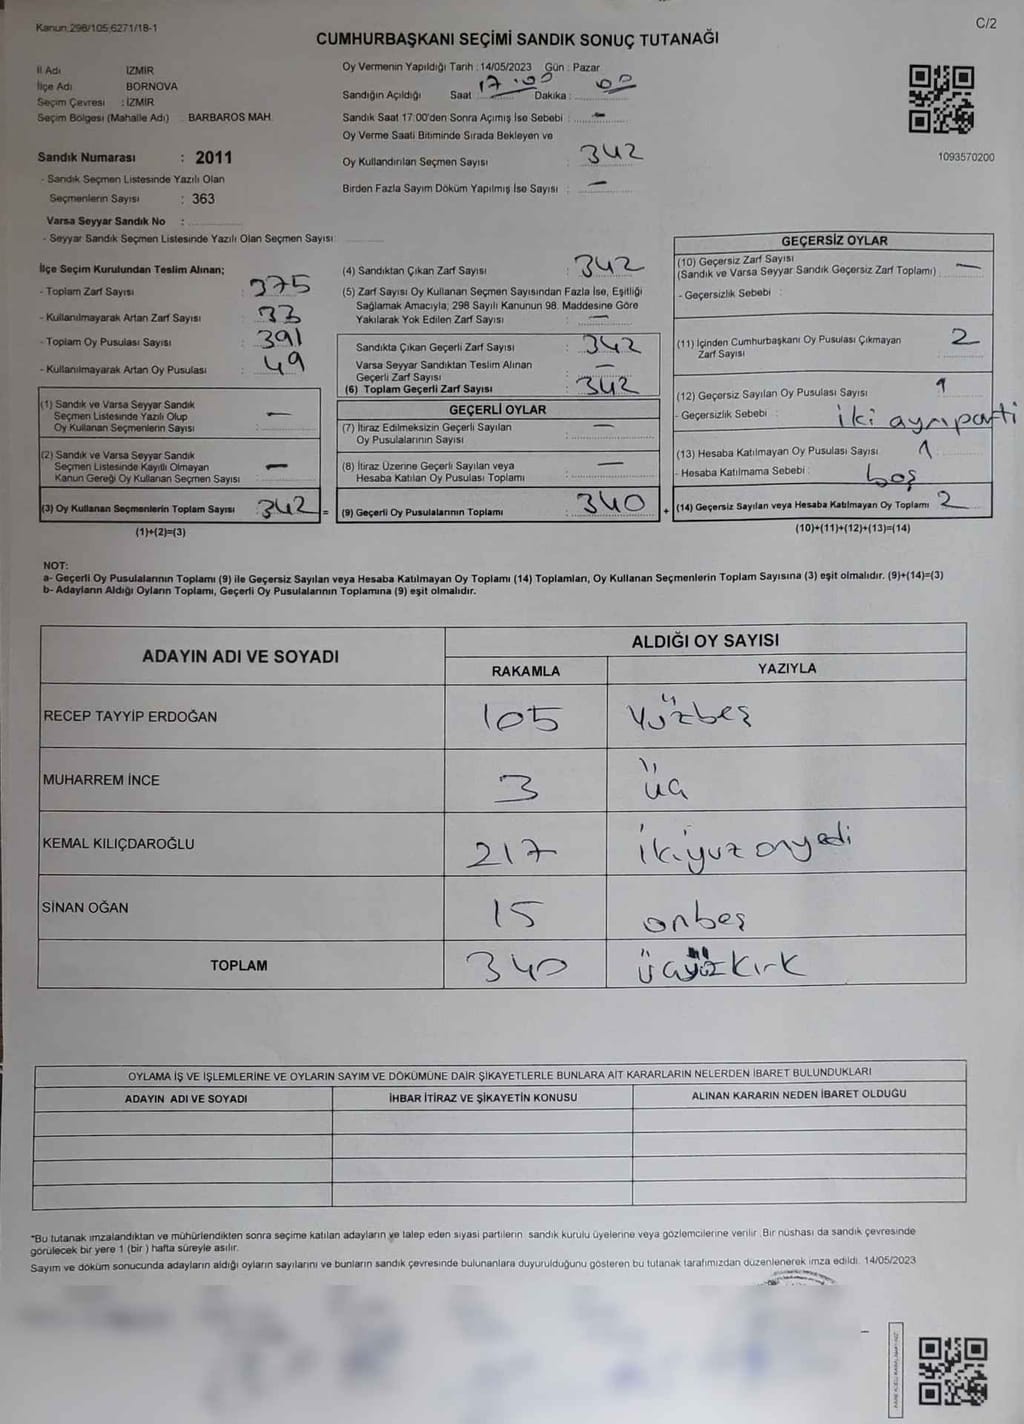 Kanun 298/105-6271/18-1
C/2
CUMHURBAŞKANI SEÇİMİ SANDIK SONUÇ TUTANAĞI
İl Adı : İZMİR
İlçe Adı BORNOVA
Seçim Çevresi : İZMİR
Seçim Bölgesi (Mahalle Adı) BARBAROS MAH.
Sandık Numarası : 2011
- Sandık Seçmen Listesinde Yazılı Olan
Seçmenlerin Sayısı : 363
Varsa Seyyar Sandık No :
- Seyyar Sandık Seçmen Listesinde Yazılı Olan Seçmen Sayısı:
Oy Vermenin Yapıldığı Tarih : 14/05/2023 Gün : Pazar
Sandığın Açıldığı Saat 17:00 Dakika : 00
Sandık Saat 17:00'den Sonra Açımış İse Sebebi : —
Oy Verme Saati Bitiminde Sırada Bekleyen ve
Oy Kullandırılan Seçmen Sayısı : 342
Birden Fazla Sayım Döküm Yapılmış İse Sayısı : —
1093570200
İlçe Seçim Kurulundan Teslim Alınan;
- Toplam Zarf Sayısı : 375
- Kullanılmayarak Artan Zarf Sayısı : 33
- Toplam Oy Pusulası Sayısı : 391
- Kullanılmayarak Artan Oy Pusulası : 49
(1) Sandık ve Varsa Seyyar Sandık
Seçmen Listesinde Yazılı Olup
Oy Kullanan Seçmenlerin Sayısı : —
(2) Sandık ve Varsa Seyyar Sandık
Seçmen Listesinde Kayıtlı Olmayan
Kanun Gereği Oy Kullanan Seçmen Sayısı : —
(3) Oy Kullanan Seçmenlerin Toplam Sayısı : 342 =
(1)+(2)=(3)
(4) Sandıktan Çıkan Zarf Sayısı : 342
(5) Zarf Sayısı Oy Kullanan Seçmen Sayısından Fazla İse, Eşitliği
Sağlamak Amacıyla; 298 Sayılı Kanunun 98. Maddesine Göre
Yakılarak Yok Edilen Zarf Sayısı : —
Sandıkta Çıkan Geçerli Zarf Sayısı : 342
Varsa Seyyar Sandıktan Teslim Alınan
Geçerli Zarf Sayısı : —
(6) Toplam Geçerli Zarf Sayısı : 342
GEÇERLİ OYLAR
(7) İtiraz Edilmeksizin Geçerli Sayılan
Oy Pusulalarının Sayısı : —
(8) İtiraz Üzerine Geçerli Sayılan veya
Hesaba Katılan Oy Pusulası Toplamı : —
(9) Geçerli Oy Pusulalarının Toplamı : 340 +
GEÇERSİZ OYLAR
(10) Geçersiz Zarf Sayısı
(Sandık ve Varsa Seyyar Sandık Geçersiz Zarf Toplamı) : —
- Geçersizlik Sebebi :
(11) İçinden Cumhurbaşkanı Oy Pusulası Çıkmayan
Zarf Sayısı : 2
(12) Geçersiz Sayılan Oy Pusulası Sayısı : 1
- Geçersizlik Sebebi : iki ayrı parti
(13) Hesaba Katılmayan Oy Pusulası Sayısı : 1
- Hesaba Katılmama Sebebi : boş
(14) Geçersiz Sayılan veya Hesaba Katılmayan Oy Toplamı 2
(10)+(11)+(12)+(13)=(14)
NOT:
a- Geçerli Oy Pusulalarının Toplamı (9) ile Geçersiz Sayılan veya Hesaba Katılmayan Oy Toplamı (14) Toplamları, Oy Kullanan Seçmenlerin Toplam Sayısına (3) eşit olmalıdır. (9)+(14)=(3)
b- Adayların Aldığı Oyların Toplamı, Geçerli Oy Pusulalarının Toplamına (9) eşit olmalıdır.
ADAYIN ADI VE SOYADI
ALDIĞI OY SAYISI
RAKAMLA YAZIYLA
RECEP TAYYİP ERDOĞAN 105 Yüzbeş
MUHARREM İNCE 3 üç
KEMAL KILIÇDAROĞLU 217 ikiyuz onyedi
SİNAN OĞAN 15 onbeş
TOPLAM 340 üçyüzkırk
OYLAMA İŞ VE İŞLEMLERİNE VE OYLARIN SAYIM VE DÖKÜMÜNE DAİR ŞİKAYETLERLE BUNLARA AİT KARARLARIN NELERDEN İBARET BULUNDUKLARI
ADAYIN ADI VE SOYADI İHBAR İTİRAZ VE ŞİKAYETİN KONUSU ALINAN KARARIN NEDEN İBARET OLDUĞU
*Bu tutanak imzalandıktan ve mühürlendikten sonra seçime katılan adayların ve talep eden siyasi partilerin sandık kurulu üyelerine veya gözlemcilerine verilir. Bir nüshası da sandık çevresinde
görülecek bir yere 1 (bir ) hafta süreyle asılır.
Sayım ve döküm sonucunda adayların aldığı oyların sayılarını ve bunların sandık çevresinde bulunanlara duyurulduğunu gösteren bu tutanak tarafımızdan düzenlenerek imza edildi. 14/05/2023